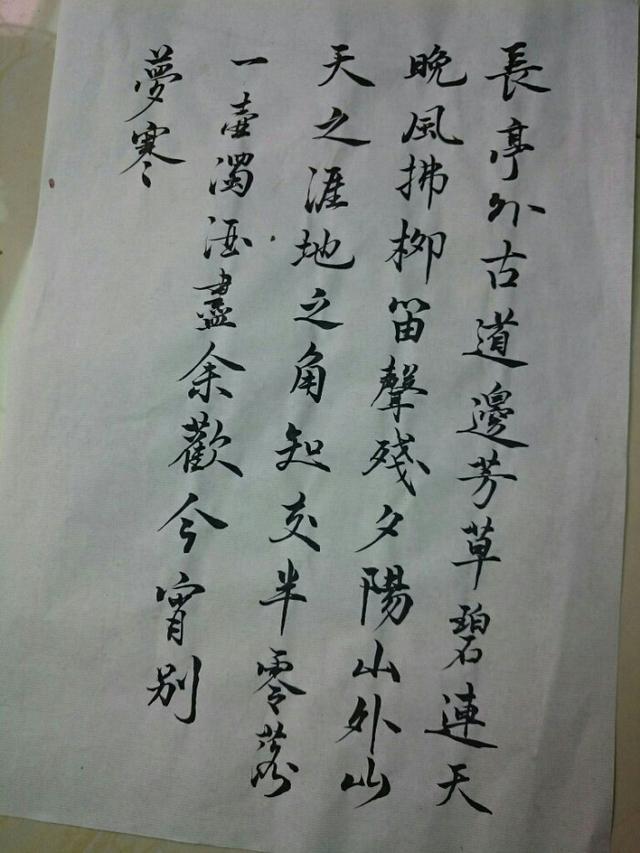 長亭外古道邊芳草碧連天
晚風拂柳笛聲殘夕陽山外山
天之涯地之角知交半零落
一壺濁酒盡余歡今宵別
夢寒